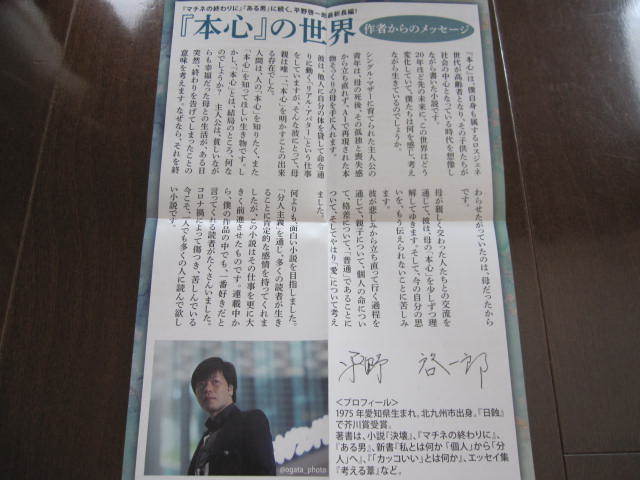 『マチネの終わりに』『ある男』に続く、平野啓一郎最新長編!
『本心』の世界
作者からのメッセージ
『本心』は、僕自身も属するロスジェネ
世代が高齢者となり、その子供たちが
社会の中心となっている時代を想像し
ながら書いた小説です。
20年ほど先の未来に、この世界はどう
変化していて、僕たちは何を感じ、考え
ながら生きているのでしょうか。
シングル・マザーに育てられた主人公の
青年は、母の死後、その孤独と喪失感
から立ち直れず、AIで再現された本
物そっくりの母を手に入れます。
彼は、他人に自分の体を貸して命令通
りに動く、リアル・アバターという仕事
をしていますが、そんな彼にとって、母
親は唯一、「本心」を明かすことの出来
る存在でした。
人間は、人の「本心」を知りたく、また
「本心」を知ってほしい生き物です。し
かし、「本心」とは、結局のところ、何な
のでしょうか? 主人公は、貧しいなが
らも幸福だった母との生活が、ある日
突然、終わりを告げてしまったことの
意味を考えます。なぜなら、それを終
わらせたがっていたのは、母だったから
です。
母が親しく交わった人たちとの交流を
通じて、彼は、母の「本心」を少しずつ理
解してゆきます。そして、今の自分の思
いを、もう伝えられないことに苦しみ
ます。
彼が悲しみから立ち直って行く過程を
通じて、親子について、個人の命につい
て、格差について、「普通」であることに
ついて、そしてやはり「愛」について考え
ました。
何よりも、面白い小説を目指しました。
「分人主義」を通じ、多くの読者が生き
ることに肯定的な感情を持ってくれま
したが、この小説はその仕事を更に大
きく前進させたものです。連載中か
ら、僕の作品の中でも、一番好きだと
言ってくれる読者がたくさんいました。
コロナ禍によって傷つき、苦しんでいる
今こそ、一人でも多くの人に読んで欲し
い小説です。
平野 啓一郎
@ogata_photo
<プロフィール>
1975年愛知県生まれ。北九州市出身。『日蝕』
で芥川賞受賞。
著書は、小説『決壊』、『マチネの終わりに』、
『ある男』、新書『私とは何か 「個人」から「分
人」へ』、『「カッコいい」とは何か』、エッセイ集
『考える葦』など。